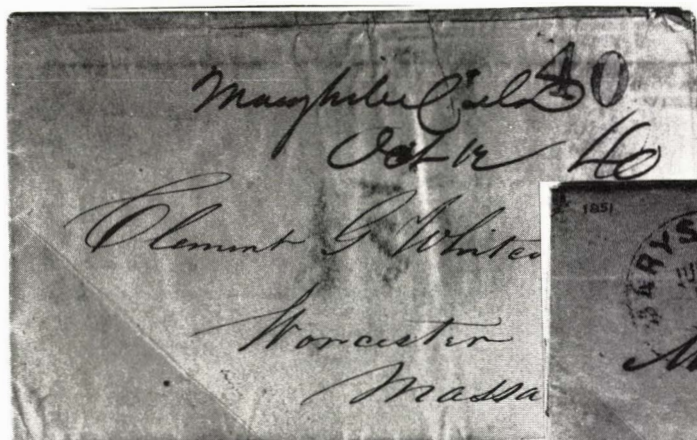 Marysville Cal 40
Oct 12 40
Clement G White
Worcester
Massa
1851
MARYS